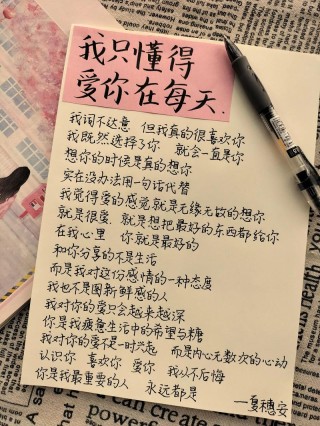 我只懂得
爱你在每天.
我词不达意 但我真的很喜欢你
我既然选择了你 就会一直是你
想你的时候是真的想你
实在没办法用一句话代替
我觉得爱的感觉就是无缘无故的想你
就是很爱 就是想把最好的东西都给你
在我心里 你就是最好的
和你分享的不是生活
而是我对这份感情的一种态度
我也不是图新鲜感的人
我对你的爱只会越来越深
你是我疲惫生活中的希望与糖
我对你的爱不是一时兴起 而是内心无数次的心动
认识你 喜欢你 爱你 我从不后悔
你是我最重要的人 永远都是
一夏穗安